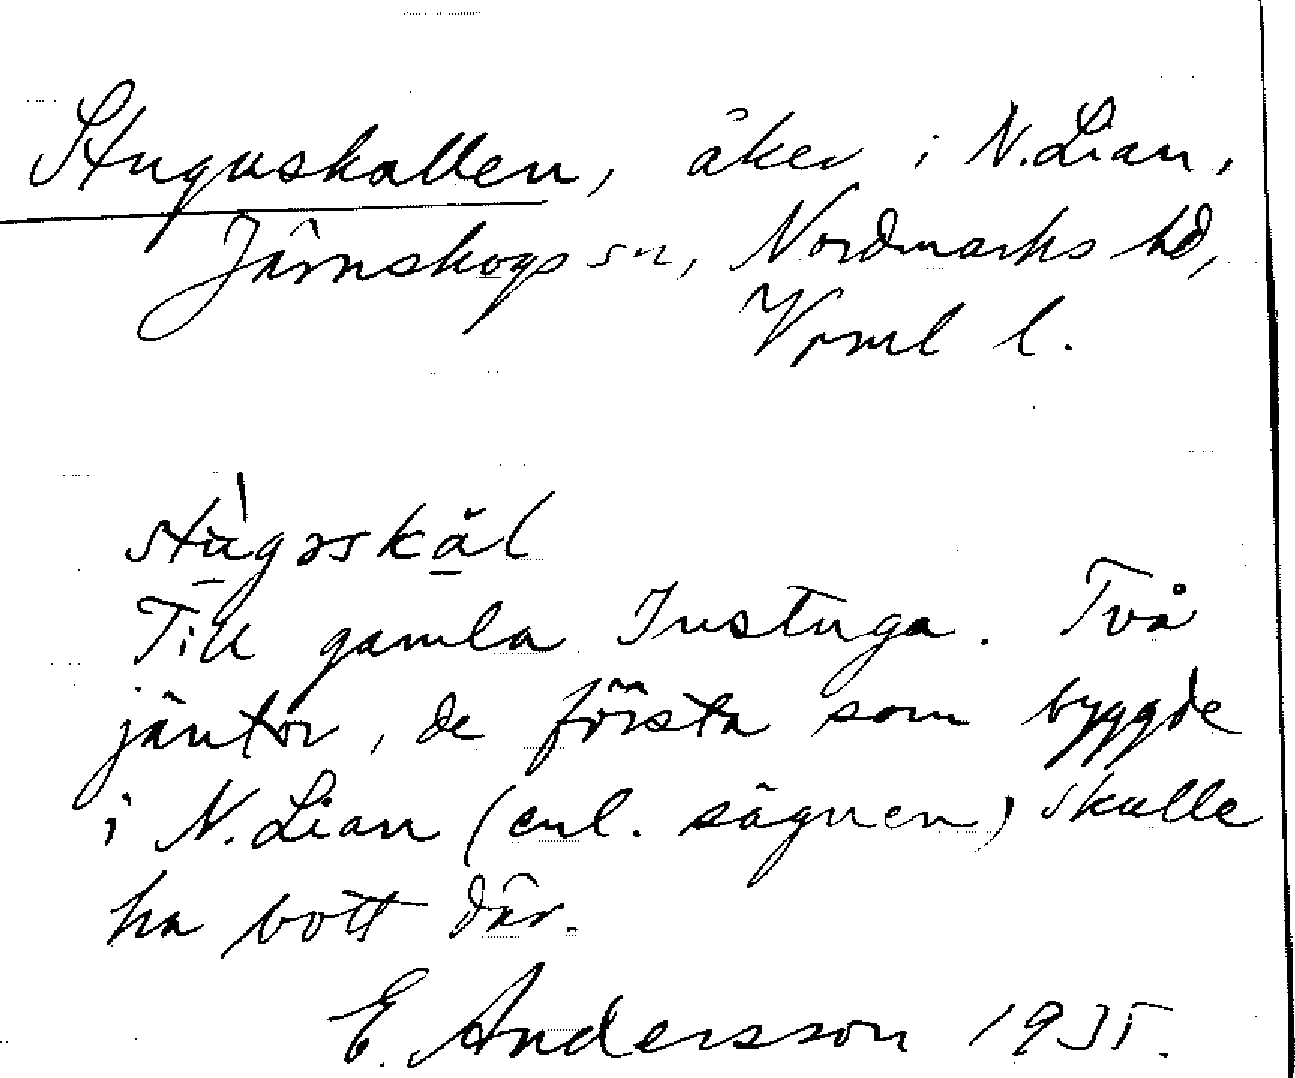 Stuguskallen, åker i N. Lian,
Järnskogs sn, Nordmarks hd,
Vrml l.
stùgəskȧl
Till gamla Instuga. Två
jäntor, de första som byggde
i N. Lian (enl. sägnen) skulle
ha bott där.
E. Andersson 1935.